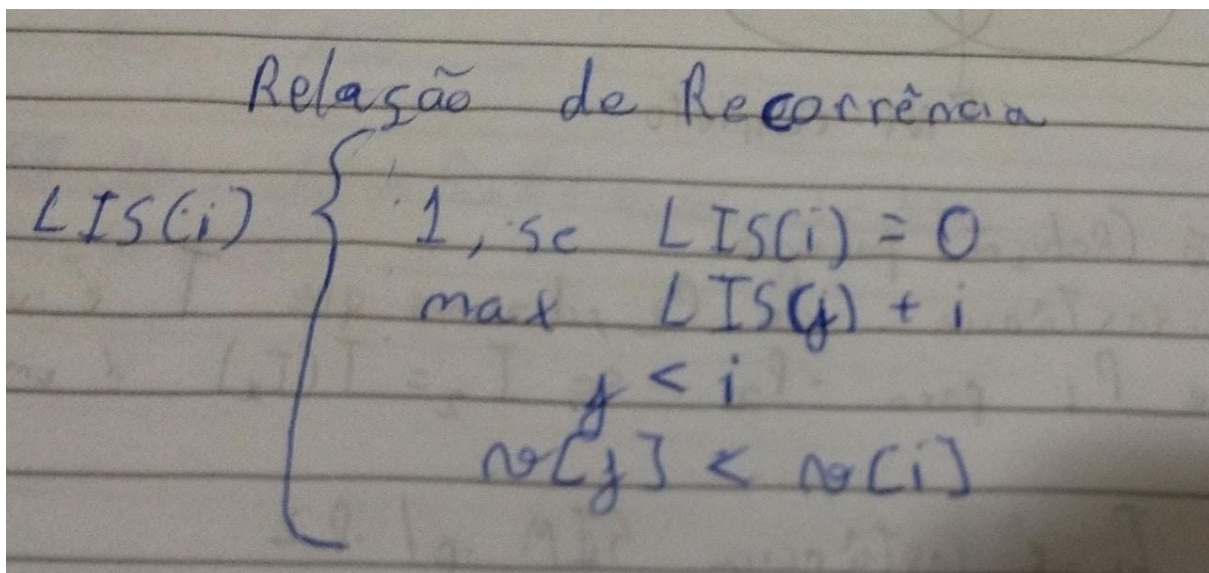 Relação de Recorrência
LIS(i) { 1, se LIS(i) = 0
max LIS(j) + i
j < i
v[j] < v[i]